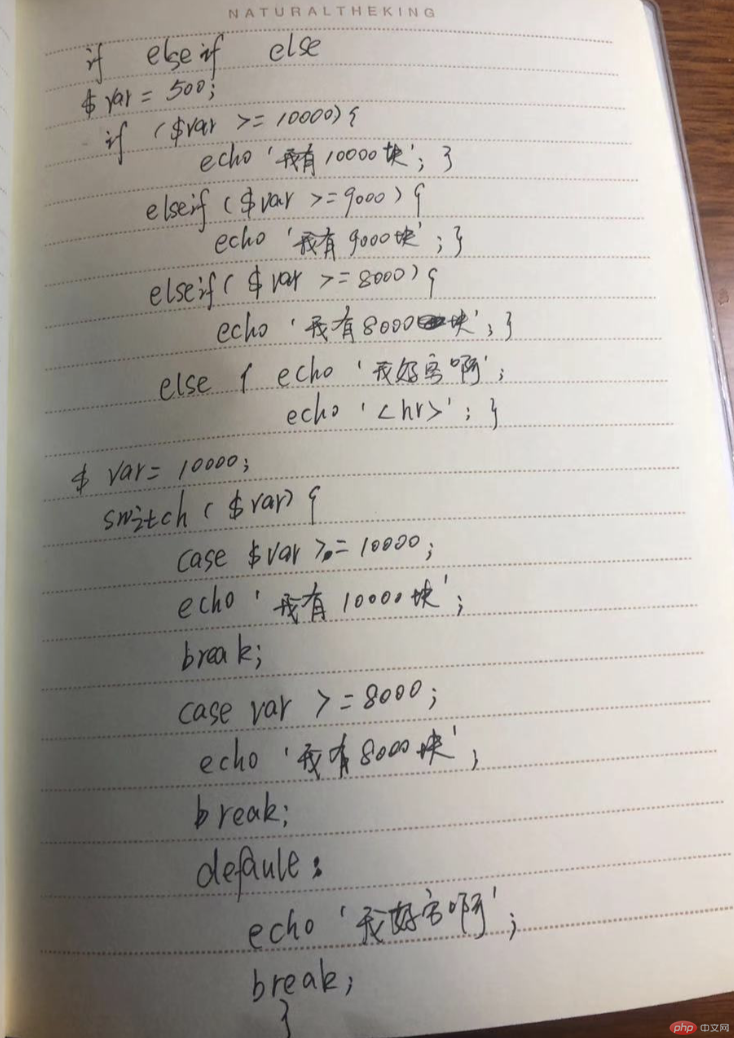 NATURALTHEKING
if elseif else
$ var = 500;
if ($var >= 10000) {
echo '我有10000块'; }
elseif ($var >=9000) {
echo '我有9000块'; }
elseif ($var >=8000) {
echo '我有8000块'; }
else { echo '我好穷啊';
echo '<hr>'; }
$ var = 10000;
switch ($var) {
case $var >= 10000;
echo '我有10000块';
break;
case var >=8000;
echo '我有8000块';
break;
defaule:
echo '我好穷啊';
break;
}
php 中文网